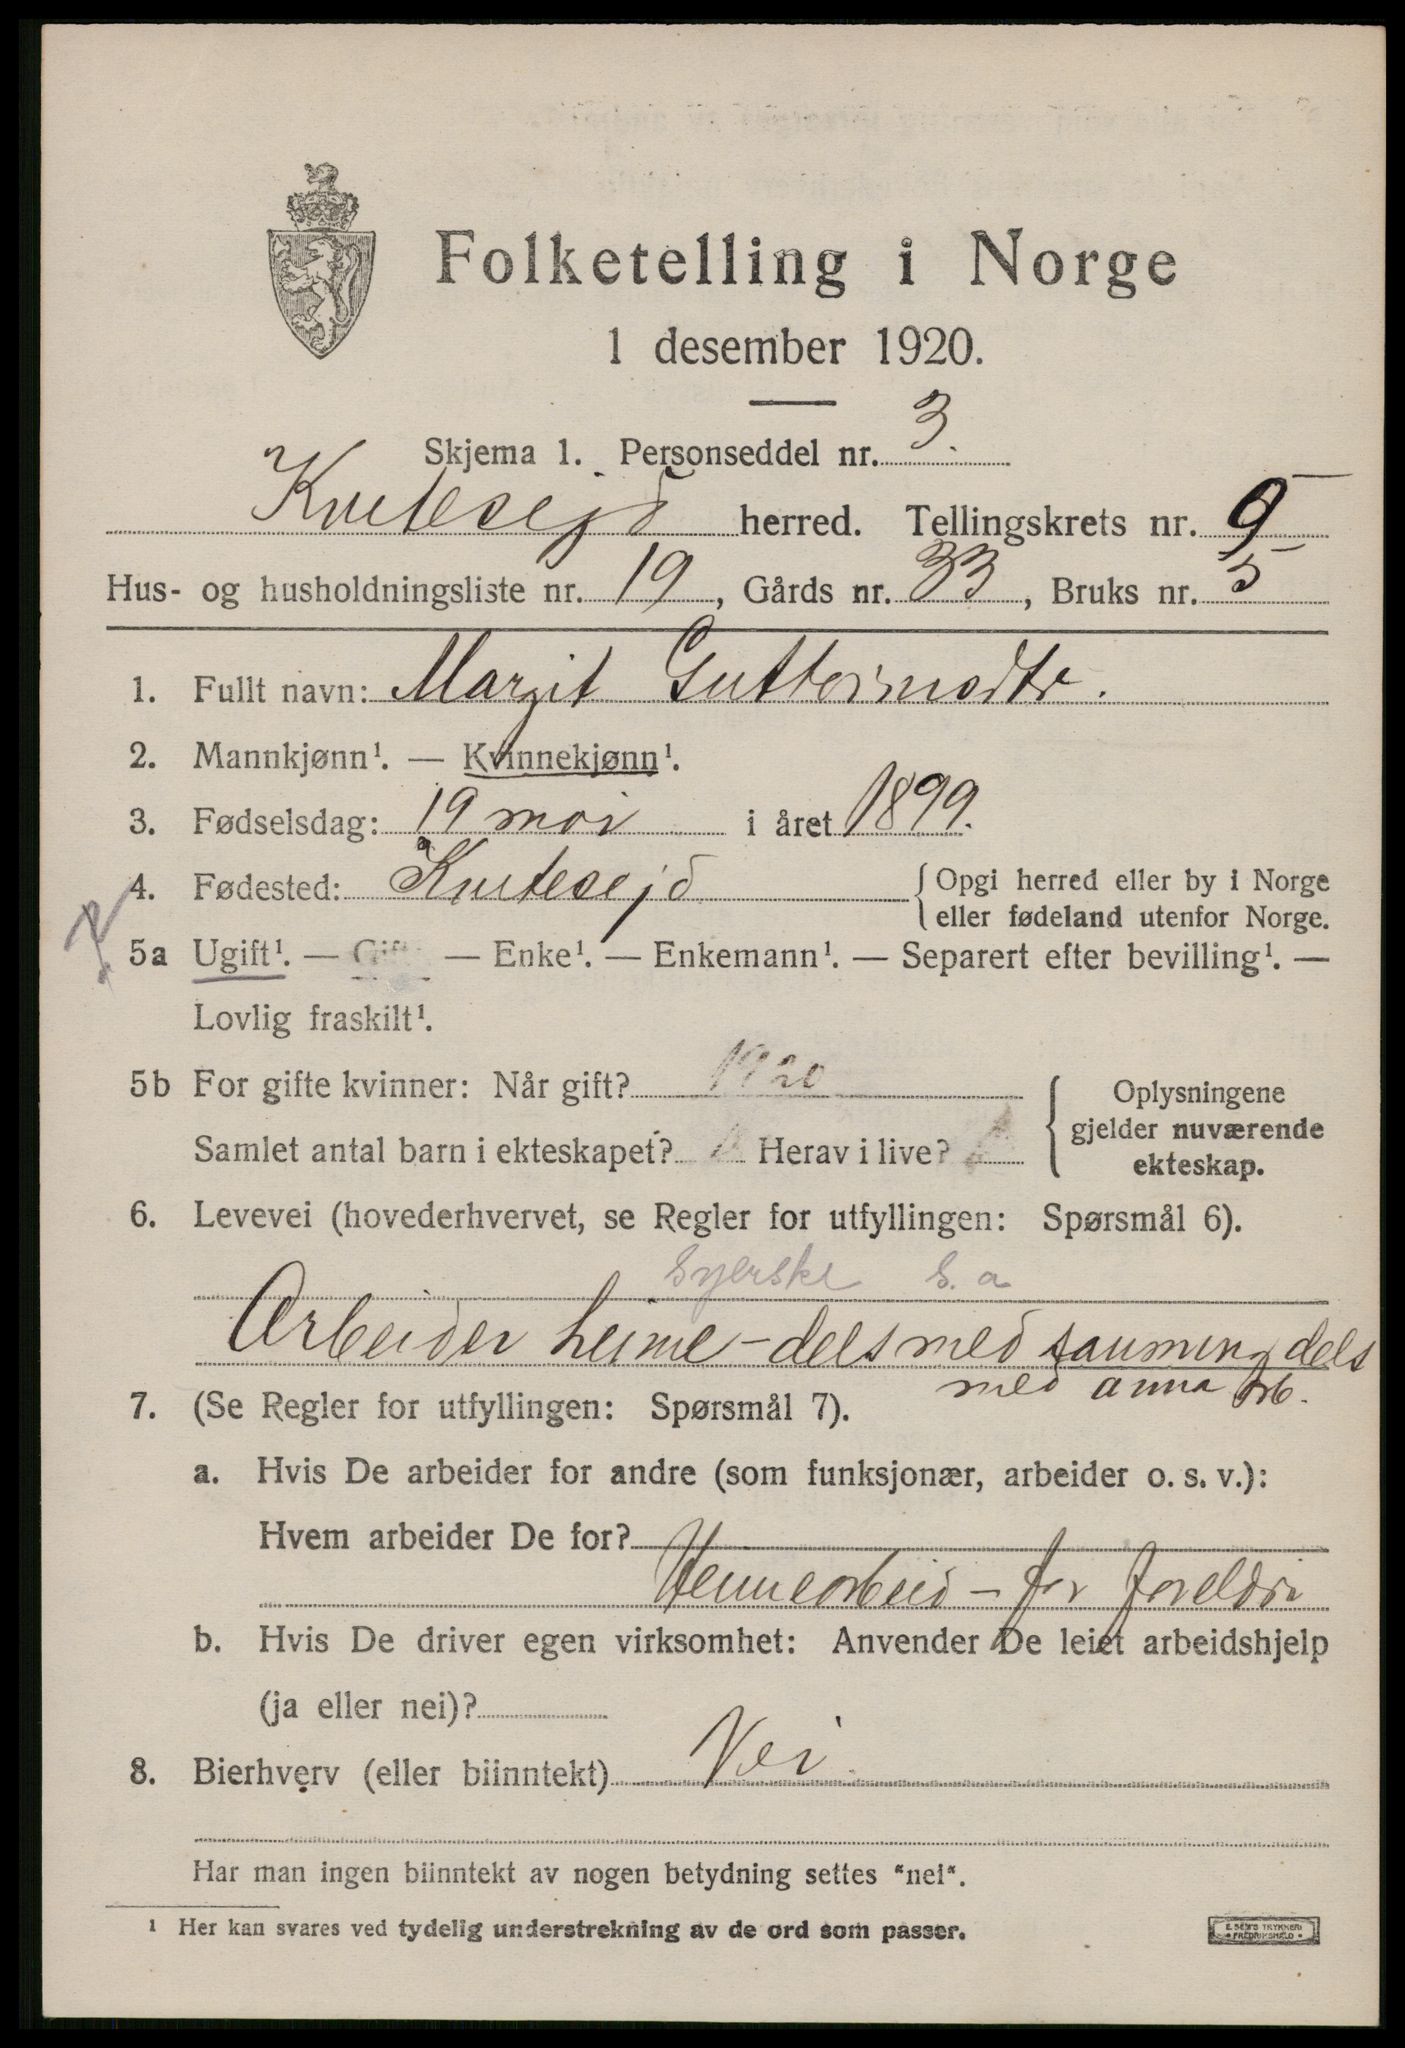 Folketelling i Norge
1 desember 1920.
Skjema 1. Personseddel nr. 3.
Kvitesejd herred. Tellingskrets nr. 9
Hus- og husholdningsliste nr. 19, Gårds nr. 33, Bruks nr. 5
1. Fullt navn: Margit Guttormsdtr.
2. Mannkjønn¹. — Kvinnekjønn¹.
3. Fødselsdag: 19 mai i året 1899.
4. Fødested: Kvitesejd {Opgi herred eller by i Norge
eller fødeland utenfor Norge.
5a Ugift¹. — Gift — Enke¹. — Enkemann¹. — Separert efter bevilling¹. —
Lovlig fraskilt¹.
5b For gifte kvinner: Når gift? 1920
Samlet antal barn i ekteskapet? Herav i live?
Oplysningene
gjelder nuværende
ekteskap.
6. Levevei (hovederhvervet, se Regler for utfyllingen: Spørsmål 6).
Syerske s.a
Arbeider heime - dels med sauming dels
med anna arb.
7. (Se Regler for utfyllingen: Spørsmål 7).
a. Hvis De arbeider for andre (som funksjonær, arbeider o. s. v.):
Hvem arbeider De for?
Heimearbeid - for foreldri
b. Hvis De driver egen virksomhet: Anvender De leiet arbeidshjelp
(ja eller nei)?
8. Bierhverv (eller biinntekt) Nei
Har man ingen biinntekt av nogen betydning settes "nei".
¹ Her kan svares ved tydelig understrekning av de ord som passer.
E. SEM'S TRYKKERI
FREDRIKSHALD